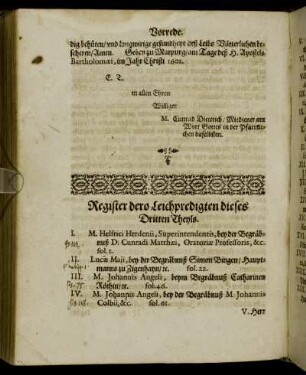 Vorrede.
dig behüten/ und langwirige gesundheyt deß Leibs Vätterlichen bescheren/ Amen. Geben zu Marpurg/ am Tage deß H. Apostels
Bartholomæi, im Jahr Christi 1601.
E. E.
in allen Ehren
Williger
M. Cunrad Dieterich/ Mitdiener am
Wort Gottes in der Pfarrkirchen
daselbsten.
Register dero Leichpredigten dieses
Dritten Theyls.
I. M. Helfrici Herdenii, Superintendentis, bey der Begräbnuß
D. Cunradi Matthæi, Oratoriæ Professoris, &c.
fol. 1.
II. Lucæ Maji, bey der Begräbnuß Simon Bingen/ Hauptmanns
zu Zigenhayn/ ꝛc. fol. 22.
III. M. Johannis Angeli, beym Begräbnuß Catharinen
Röthin/ ꝛc. fol. 46.
IV. M. Johannis Angeli, bey der Begräbnuß M. Johannis
Colbii, &c. fol. 61.
V. Herr